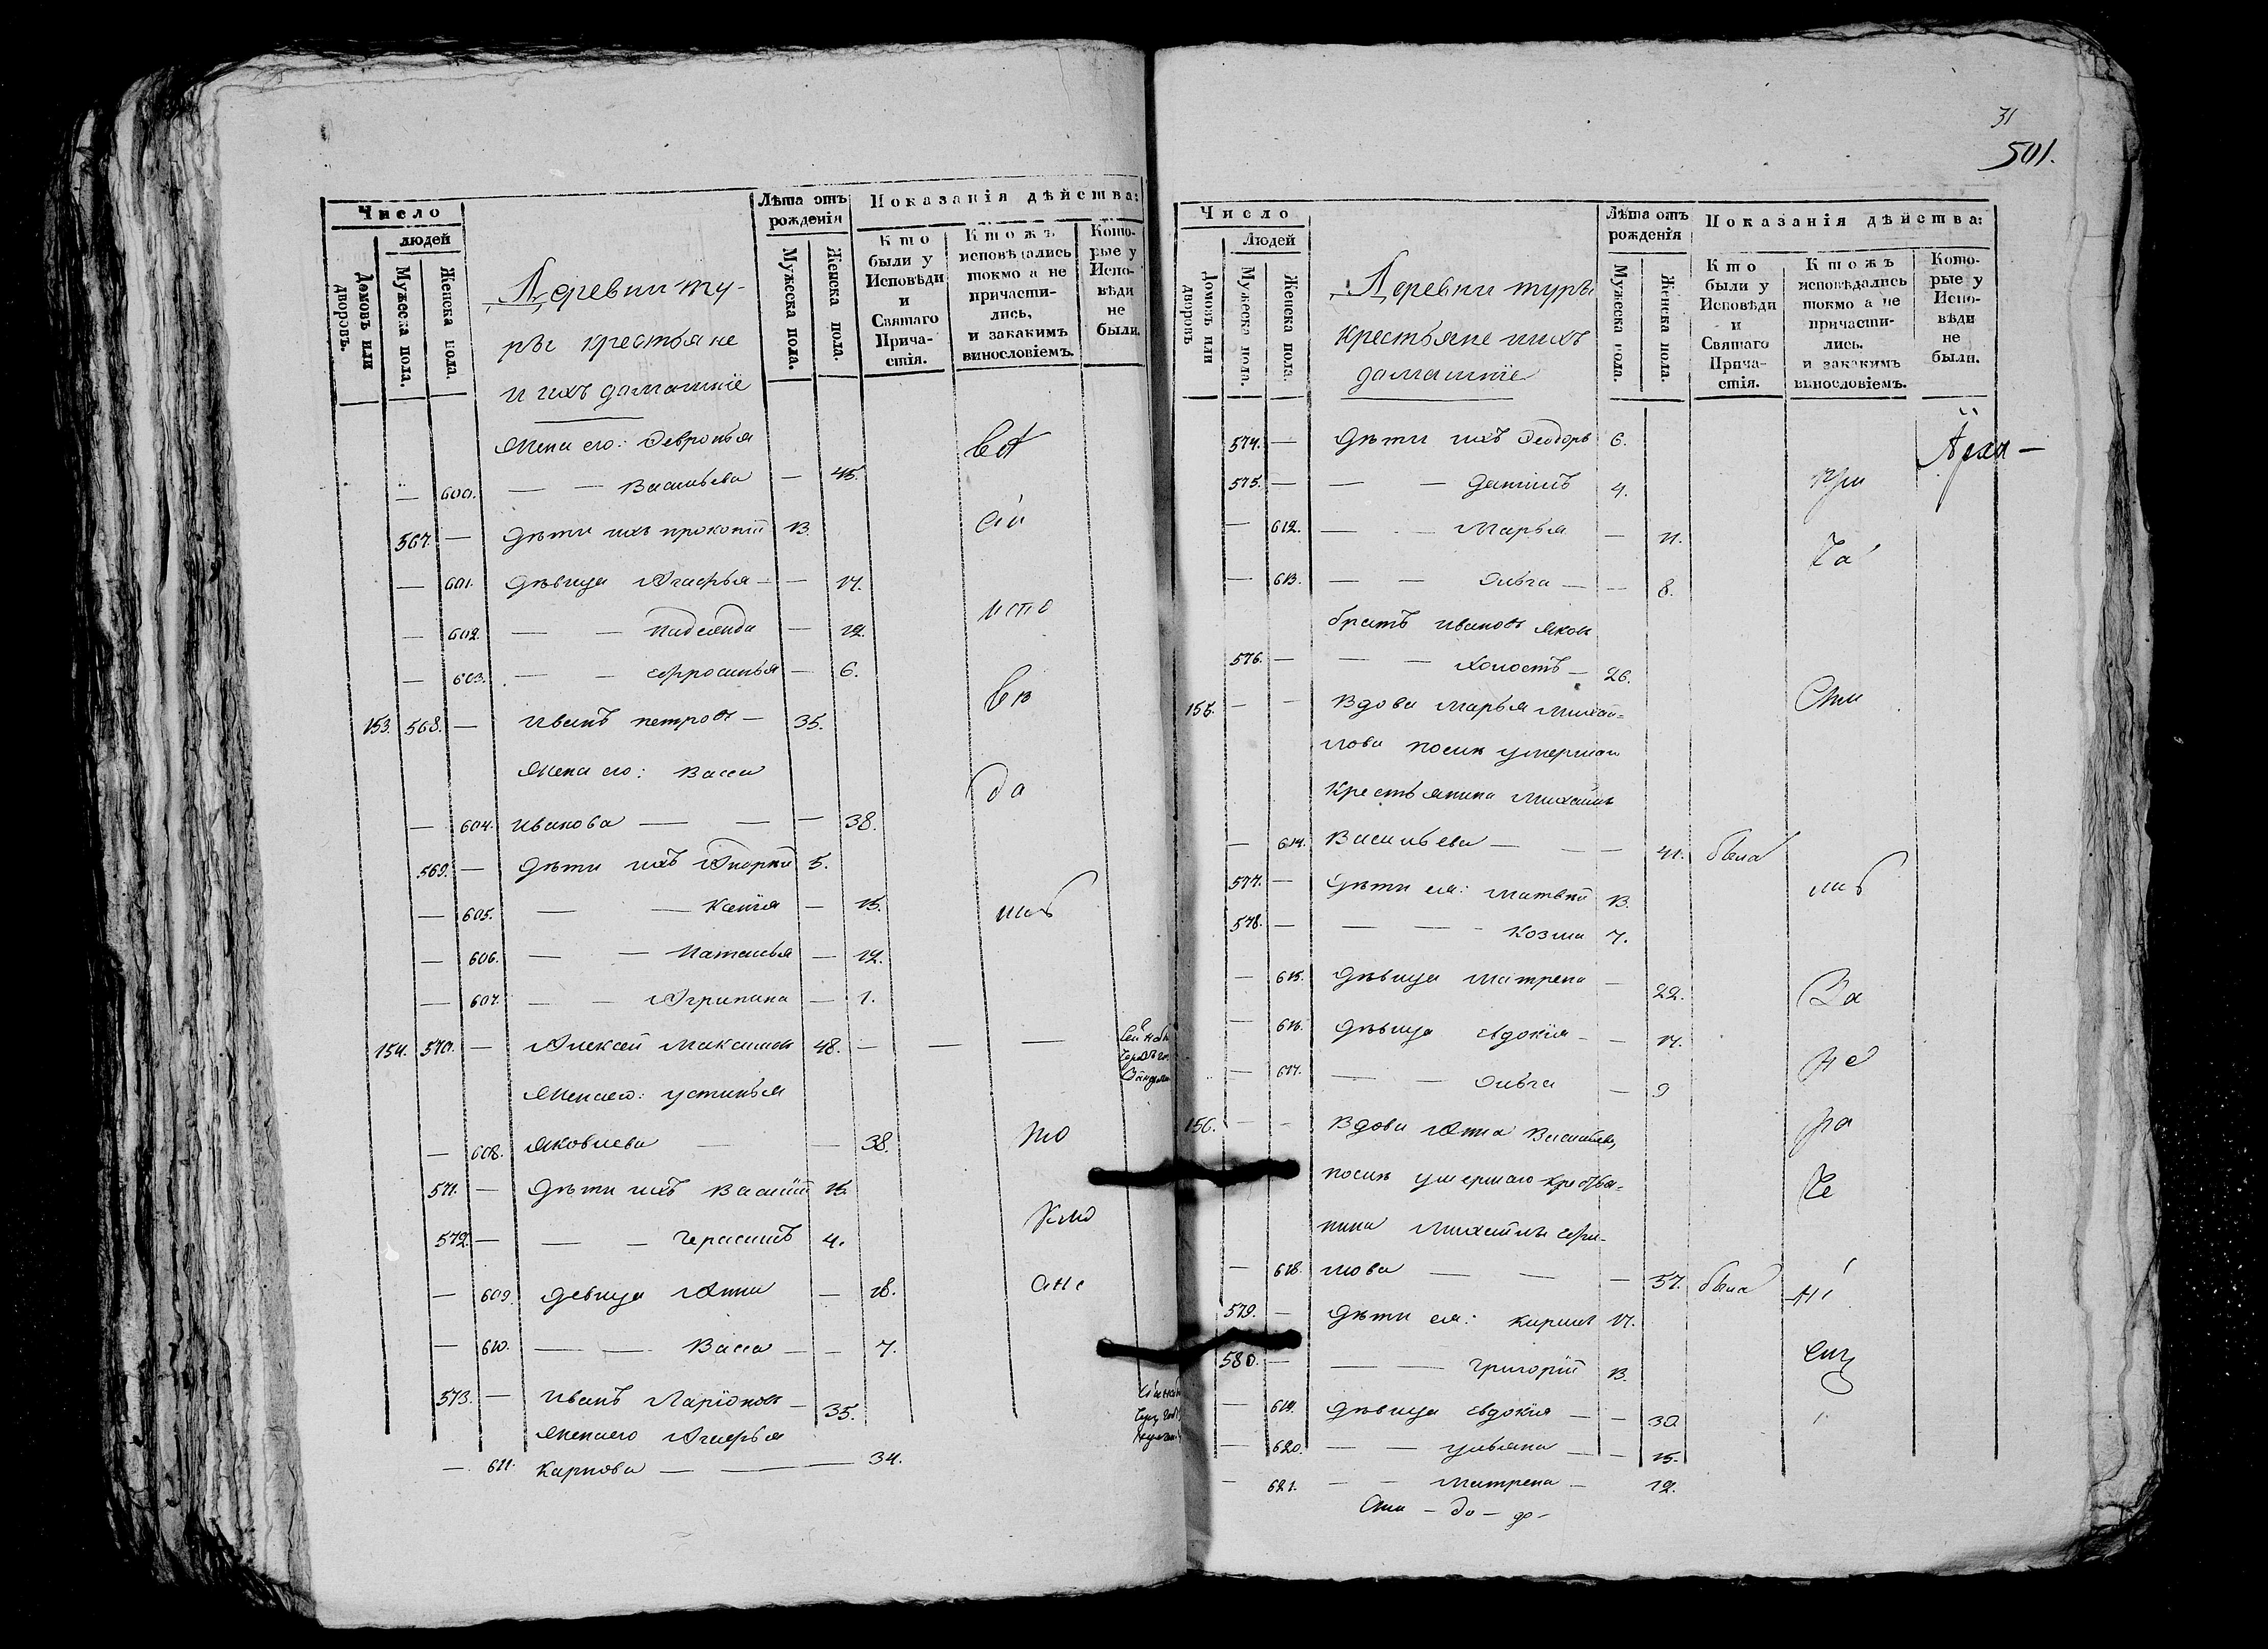 Число
людей
Домовъ или дворовъ.
Мужеска пола.
Женска пола.
Деревни Ту-
ры крестьяне
и ихъ домашніе
Лѣта отъ рожденія
Мужеска пола.
Женска пола.
Показанія дѣйства:
Кто были у Исповѣди и Святаго Прича-стія.
Ктожъ исповѣдались токмо а не причасти-лись, и закакимъ винословіемъ.
Кото-рые у Испо-вѣди не были.
Жена его: Февронья
— 600. — — Васильева — 45.
567. — Дѣти ихъ Прокопій 13.
— 601. Дѣвица Агафья — — 17.
— 602. — — Надежда — 12.
испо
— 603. — — Ефросинья — 6.
153. 568. — Иванъ Петровъ — 35.
Жена его: Васса
да
— 604. Иванова — — — 38.
569. — Дѣти ихъ Андрей 5.
— 605. — — Ксенія — 15.
— 606. — — Наталья — 12.
— 607. — — Агрипина — 1.
154. 570. — Алексей Максимовъ 48. — — —
Жена его: Устинья
— 608. Яковлева — — 38.
то
571. — Дѣти ихъ Василій 15.
572. — — — Герасимъ 4.
— 609. Девица Анна — 18.
— 610. — — Васса — — 7.
573. — Иванъ Ларіоновъ — 35.
Жена его Агафья
— 611. Карпова — — — 34.
31
501.
Число
Людей
Домовъ или дворовъ
Мужеска пола.
Женска пола.
Деревни Туры
крестьяне ихъ
домашніе
Лѣта отъ рожденія
Мужеска пола.
Женска пола.
Показанія дѣйства:
Кто были у Исповѣди и Святаго Прича-стія.
Ктожъ исповѣдались токмо а не причасти-лись. и закакимъ винословіемъ.
Кото-рые у Испо-вѣди не были.
574. — Дѣти ихъ Феодоръ 6.
575. — — — Даніилъ 4.
при
— 612. — — Марья — 11.
ча
— 613. — — Ольга — — 8.
братъ Ивановъ Яковъ
576. — — — холостъ — 26.
155. — — Вдова Марья Михай-
сти
лова послѣ умершаго
крестьянина Михайла
— 614. Васильева — — — 41. была
577. — Дѣти ея: Матвѣй 13.
578. — — — — Козма 7.
— 615. Дѣвица Матрена — 22.
За
— 616. Дѣвица Евдокія — — 17.
не
— 617. — — Ольга — 9
156. — — Вдова Анна Васильева,
ра
послѣ умершаго крестья-
че
нина Михайла Ефи-
— 618. мова — — — 57. была
ні
579. — Дѣти ея: Кирилъ 17.
580. — — — Григорій 13.
— 619. Дѣвица Евдокія — — 30.
— 620. — — Ульяна — — 15.
— 621. — — Матрена — 12.